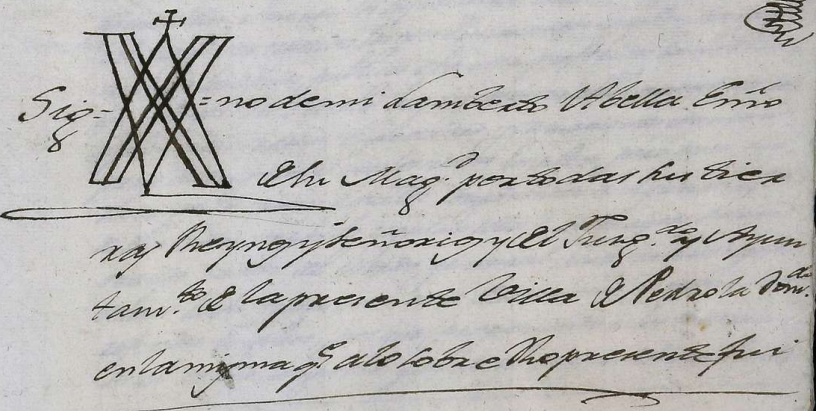 Sig= =no de mi Lamberto Vbella Esno
de su Mag.d por todas sus tier
ras Reynos y Señorios y del Juzg.do y Ayun
tam.to de la presente Villa de Pedrola Dom.do
en la misma q.e a lo sobre dho presente fui